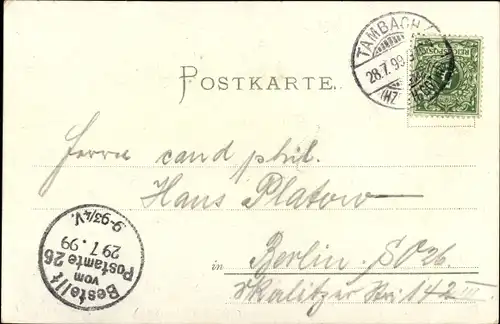 TAMBACH
28.7.99
(HZ
POSTKARTE.
Herrn cand phil.
Hans Platow
in Berlin. SO 26.
Skalitzer Str. 142 III
Bestellt
vom
Postamte 26
29.7.99
9-9 3/4 V.